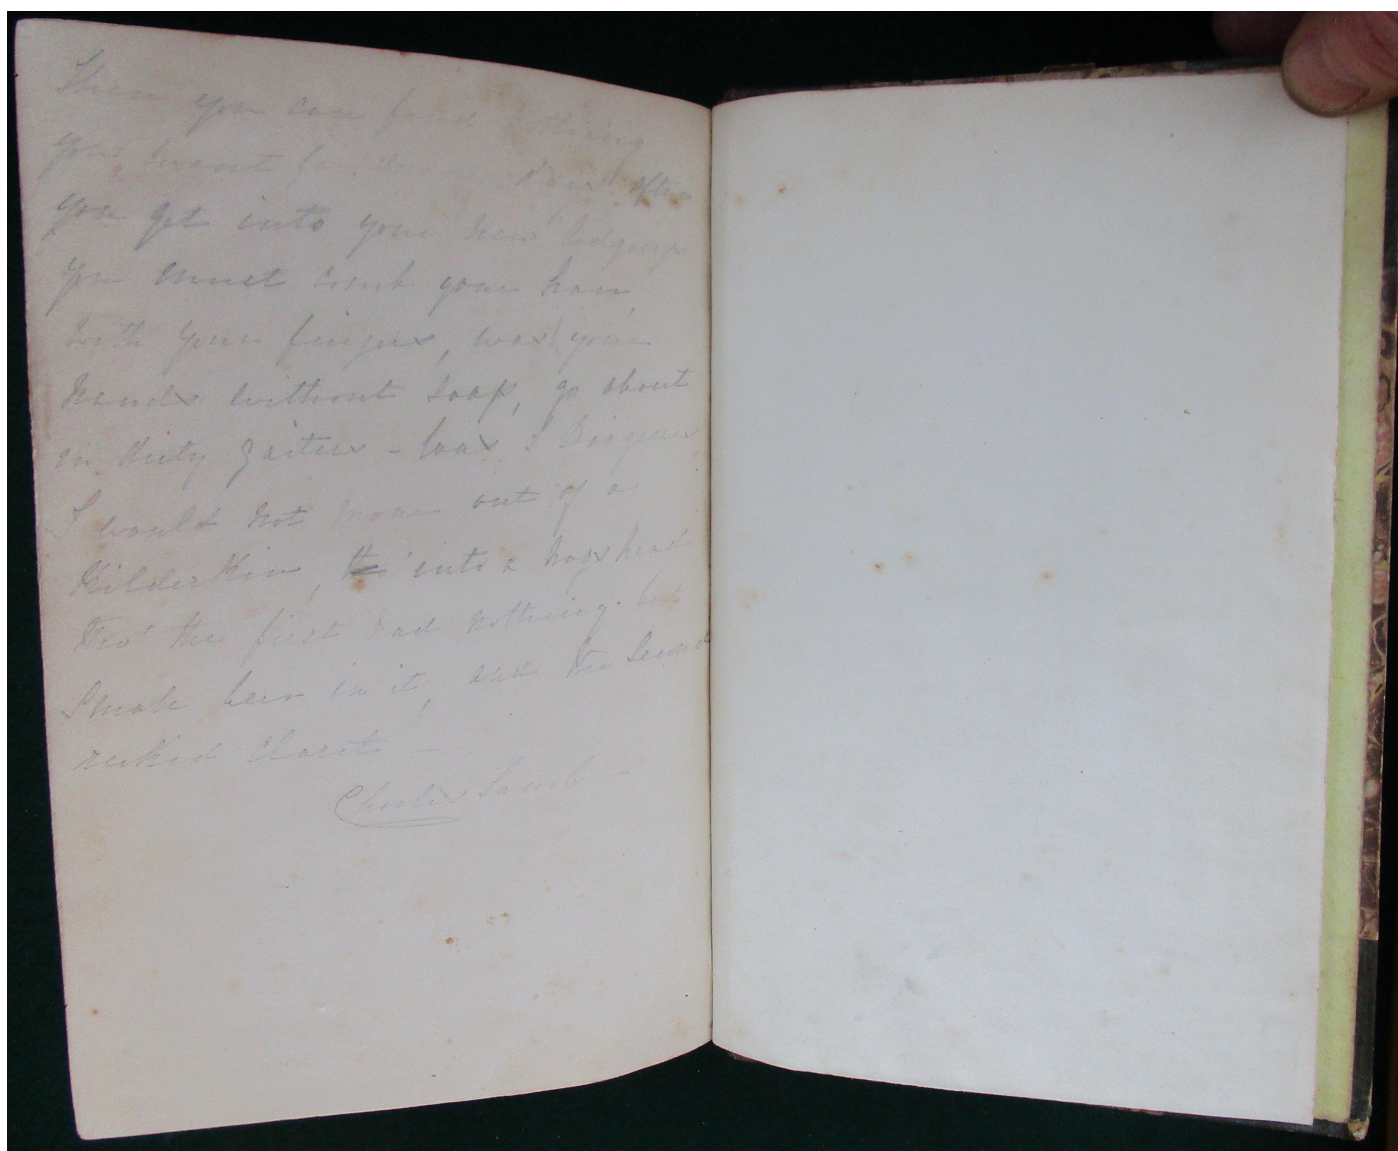 Then you can find nothing
you want for many days after
you get into your new lodgings
you must comb your hair
with your fingers, wash your
hands without soap, go about
in dirty gaiters - Was I Diogenes
I would not move out of a
Kilderkin, into a hogshead
tho' the first had nothing but
small beer in it, and the second
reeked Claret -
Charles Lamb -